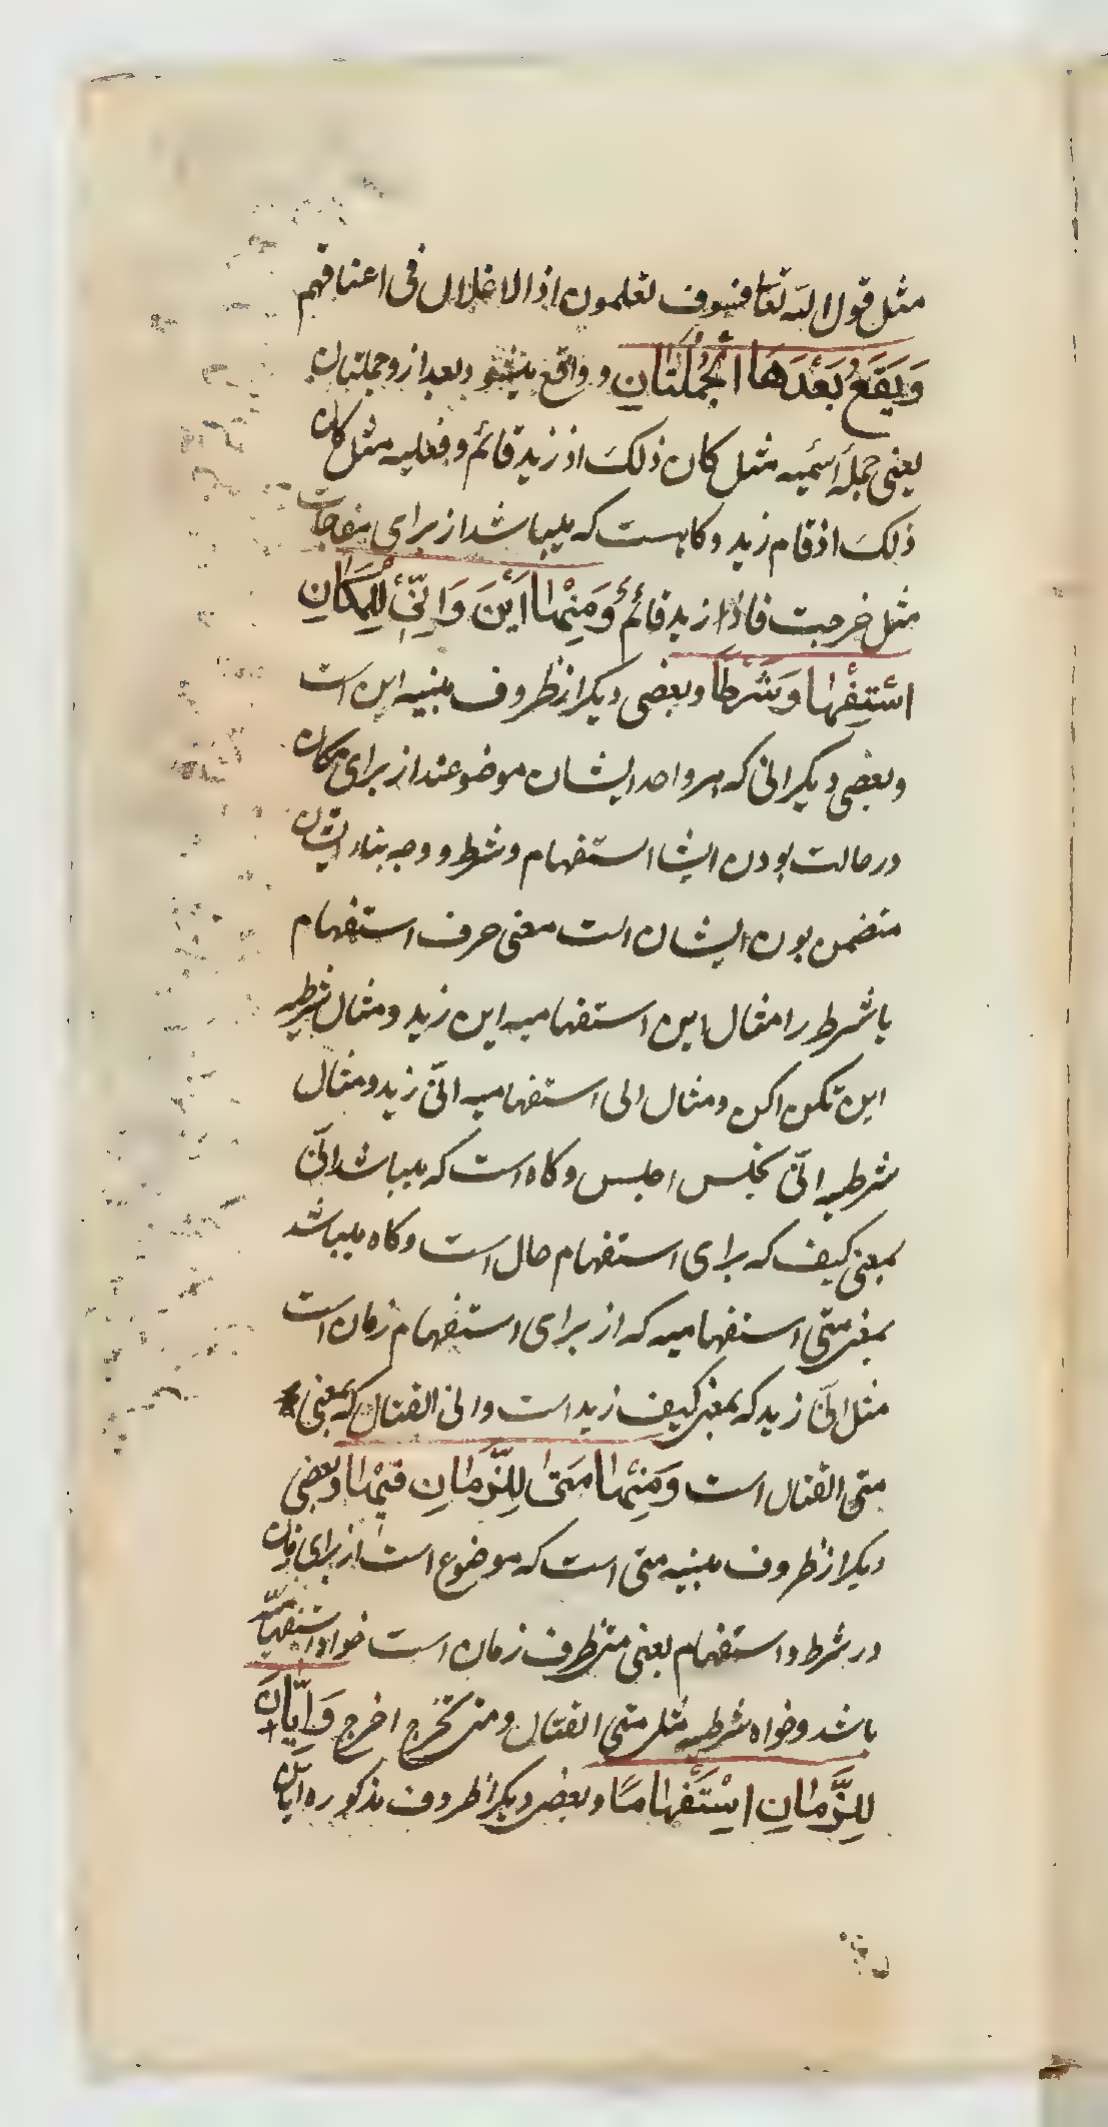 مثل قول الله تعا فسوف تعلمون اذا الاغلال فى اعناقهم
وَيَقَعُ بَعْدَهَا الْجُمْلَتَانِ و واقع میشو بعد از و جملتان
یعنی جملۀ اسمیه مثل کان ذلک اذ زید قائم و فعلیه مثل کان
ذلک اذ قام زید و کاهست که میباشد از برای مفاجات
مثل خرجت فاذا زید قائم وَمِنْها اَيْنَ وَاَنّىٰ لِلْمَكَانِ
اسْتِفْهاما وَشَرْطًا و بعضی دیکر از ظروف مبنیه این است
و بعضی دیکر انی که هر واحد ایشان موضوعند از برای مکان
در حالت بودن ایشا استفهام و شرط و وجه بناء ایشان
متضمن بودن ایشان است معنی حرف استفهام
یا شرط را مثال این استفهامیه این زید و مثال شرطیه
این تکن اکن و مثال انی استفهامیه انّی زید و مثال
شرطیه انّی تجلس اجلس و کاه است که میباشد انّی
بمعنی کیف که برای استفهام حال است و کاه میباشد
بمعنی متی استفهامیه که از برای استفهام زمان است
مثل انّی زید که بمعنی کیف زید است و انی القتال که بمعنی
متی القتال است وَمِنْها مَتىٰ لِلزَّمانِ فيهما و بعضی
دیکر از ظروف مبنیه متی است که موضوع است از برای زمان
در شرط و استفهام یعنی متی ظرف زمان است خواه استفهامیه
باشد و خواه شرطیه مثل متی القتال و متی تخرج اخرج وَاَيّانَ
لِلزَّمانِ اسْتِفْهامًا و بعضی دیکر از ظروف مذکوره ایان